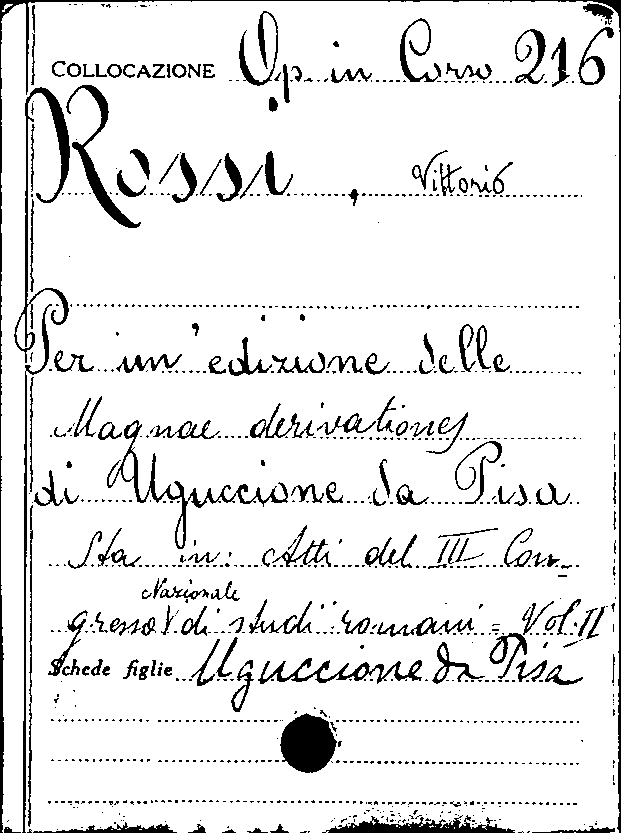 COLLOCAZIONE Op. in Corso 216
Rossi, Vittorio
Per un'edizione delle
Magnae derivationes
di Uguccione da Pisa
Sta in: Atti del III Con-
Nazionale
gresso √ di studi romani = Vol. II
Schede figlie Uguccione da Pisa